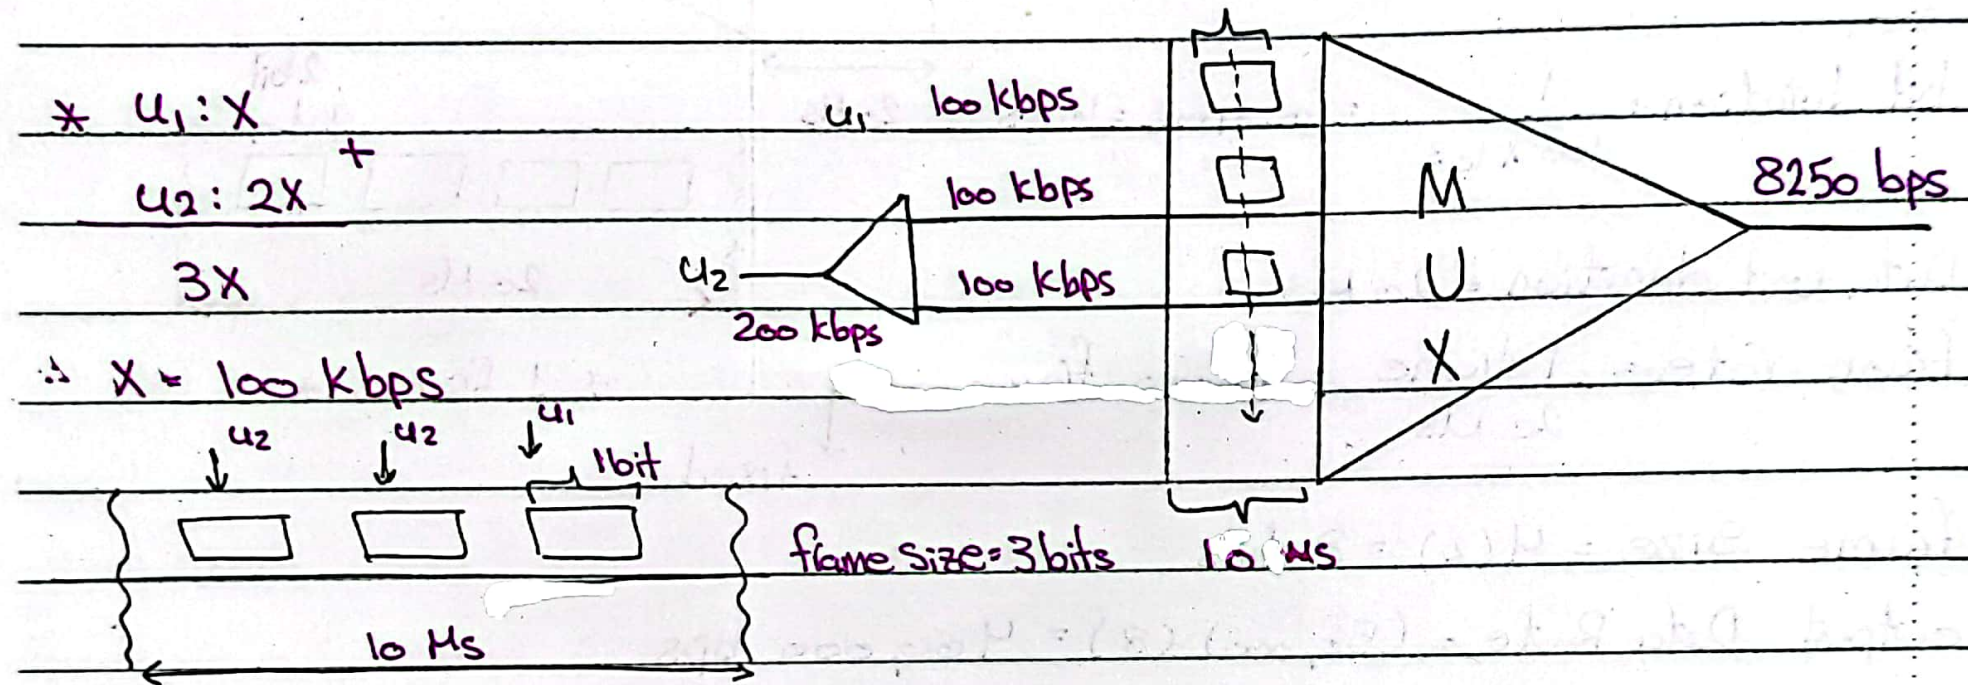 * u₁ : X
+
u₂ : 2X
3X
∴ X = 100 Kbps
u₁ 100 kbps
100 kbps
u₂ 100 kbps
200 kbps
M
U
X
8250 bps
u₂ u₂ u₁
1bit
frame size = 3 bits
10 Ms
10 Ms